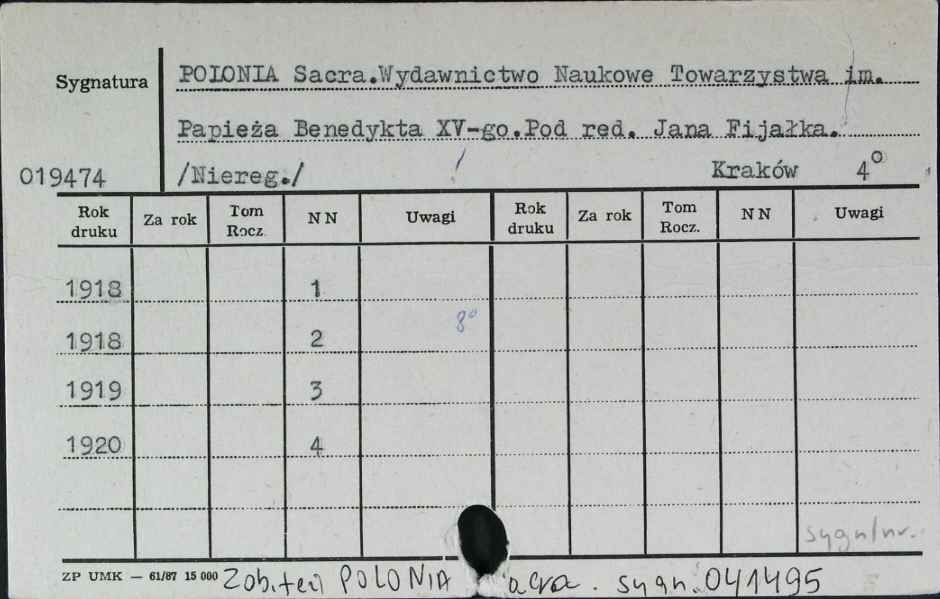 Sygnatura
POLONIA Sacra.Wydawnictwo Naukowe Towarzystwa im.
Papieża Benedykta XV-go.Pod red. Jana Fijałka.
019474 /Niereg./ Kraków 4°
Rok druku Za rok Tom Rocz. NN Uwagi Rok druku Za rok Tom Rocz. NN Uwagi
1918 1
8°
1918 2
1919 3
1920 4
sygn/nr.
ZP UMK — 61/87 15 000 Zob.też POLONIA acra. sygn. 041495